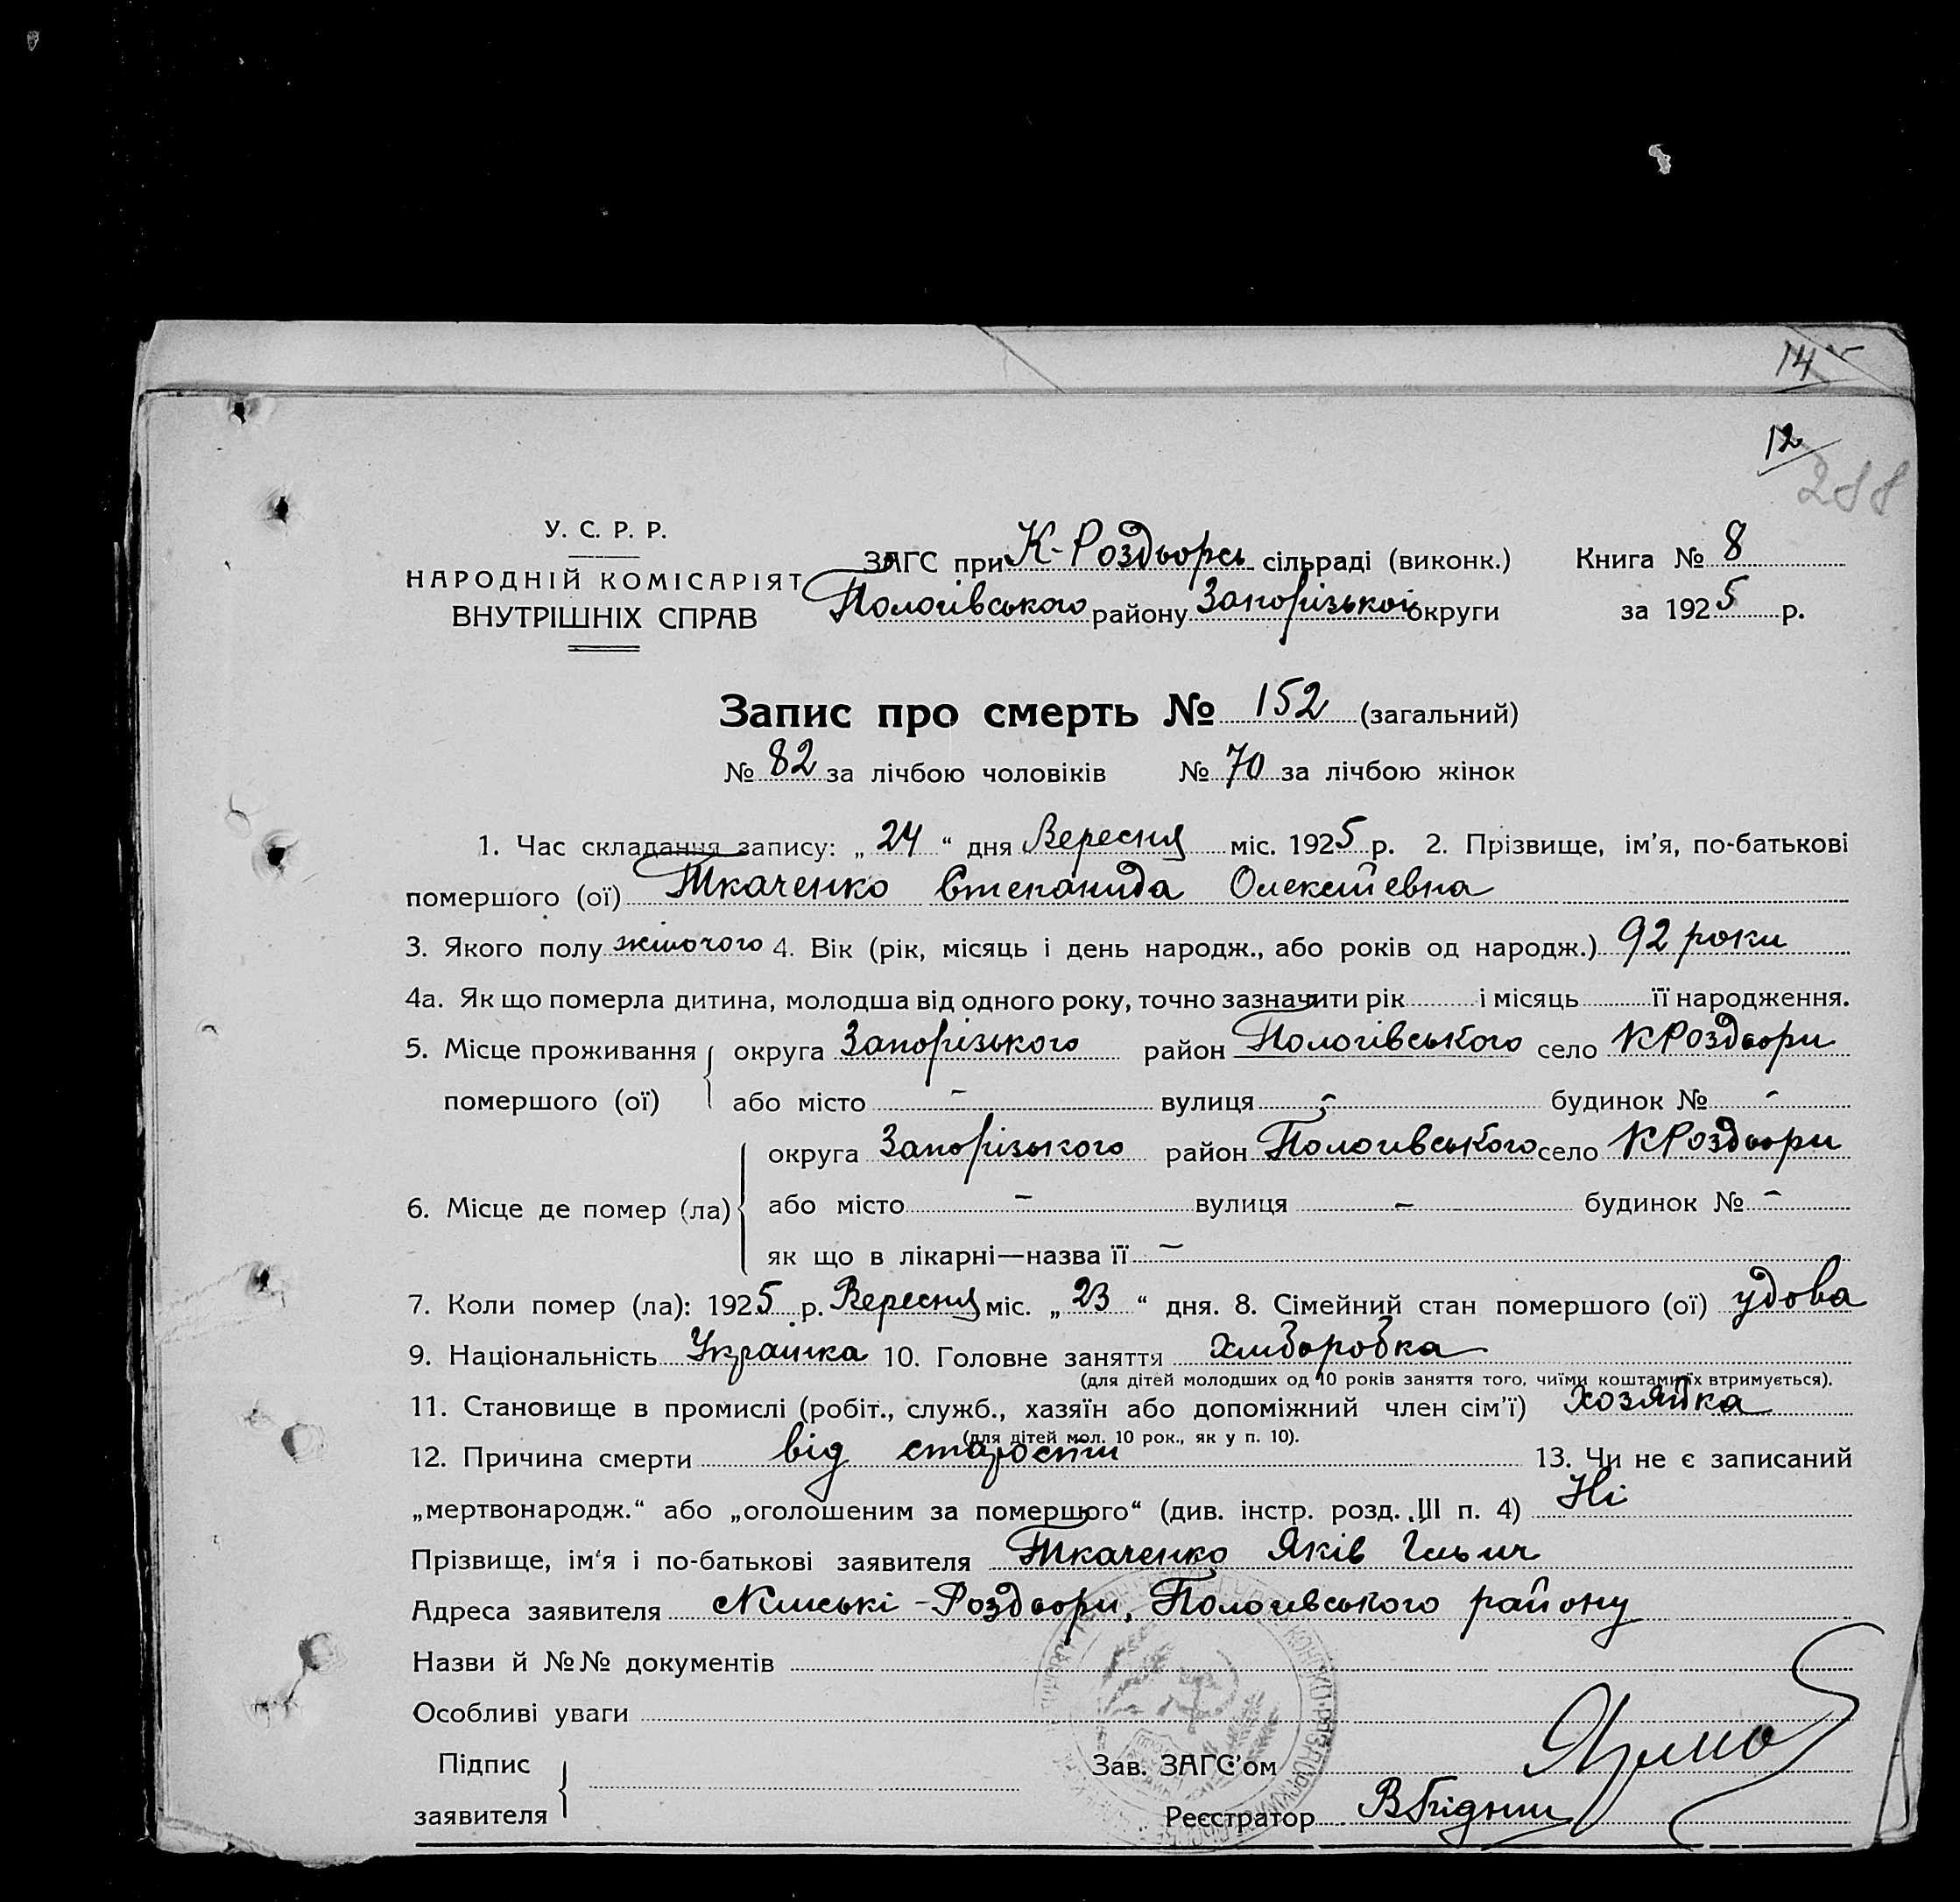 14
12
288
У. С. Р. Р.
НАРОДНІЙ КОМІСАРІЯТ
ВНУТРІШНІХ СПРАВ
ЗАГС при К-Роздорсь сільраді (виконк.) Книга № 8
Пологівського району Запорізької округи за 1925 р.
Запис про смерть № 152 (загальний)
№ 82 за лічбою чоловіків № 70 за лічбою жінок
1. Час складання запису: „ 24 “ дня Вересня міс. 1925 р. 2. Прізвище, ім'я, по-батькові
помершого (ої) Ткаченко Степанида Олексіївна
3. Якого полу жіночого 4. Вік (рік, місяць і день народж., або років од народж.) 92 роки
4а. Як що померла дитина, молодша від одного року, точно зазначити рік і місяць її народження.
5. Місце проживання округа Запорізького район Пологівського село КРоздори
помершого (ої) або місто - вулиця - будинок № -
округа Запорізького район Пологівського село КРоздори
6. Місце де помер (ла) або місто - вулиця - будинок № -
як що в лікарні—назва її -
7. Коли помер (ла): 1925 р. Вересня міс. „ 23 “ дня. 8. Сімейний стан помершого (ої) удова
9. Національність Українка 10. Головне заняття хліборобка
(для дітей молодших од 10 років заняття того, чиїми коштами їх втримується).
11. Становище в промислі (робіт., служб., хазяїн або допоміжний член сім'ї) хозяйка
(для дітей мол. 10 рок., як у п. 10).
12. Причина смерти від старости 13. Чи не є записаний
„мертвонародж.“ або „оголошеним за помершого“ (див. інстр. розд. III п. 4) Ні
Прізвище, ім'я і по-батькові заявителя Ткаченко Яків Ільич
Адреса заявителя Кінські-Роздори, Пологівського району
Назви й №№ документів
Особливі уваги
Підпис
заявителя
Зав. ЗАГС'ом
Реєстратор